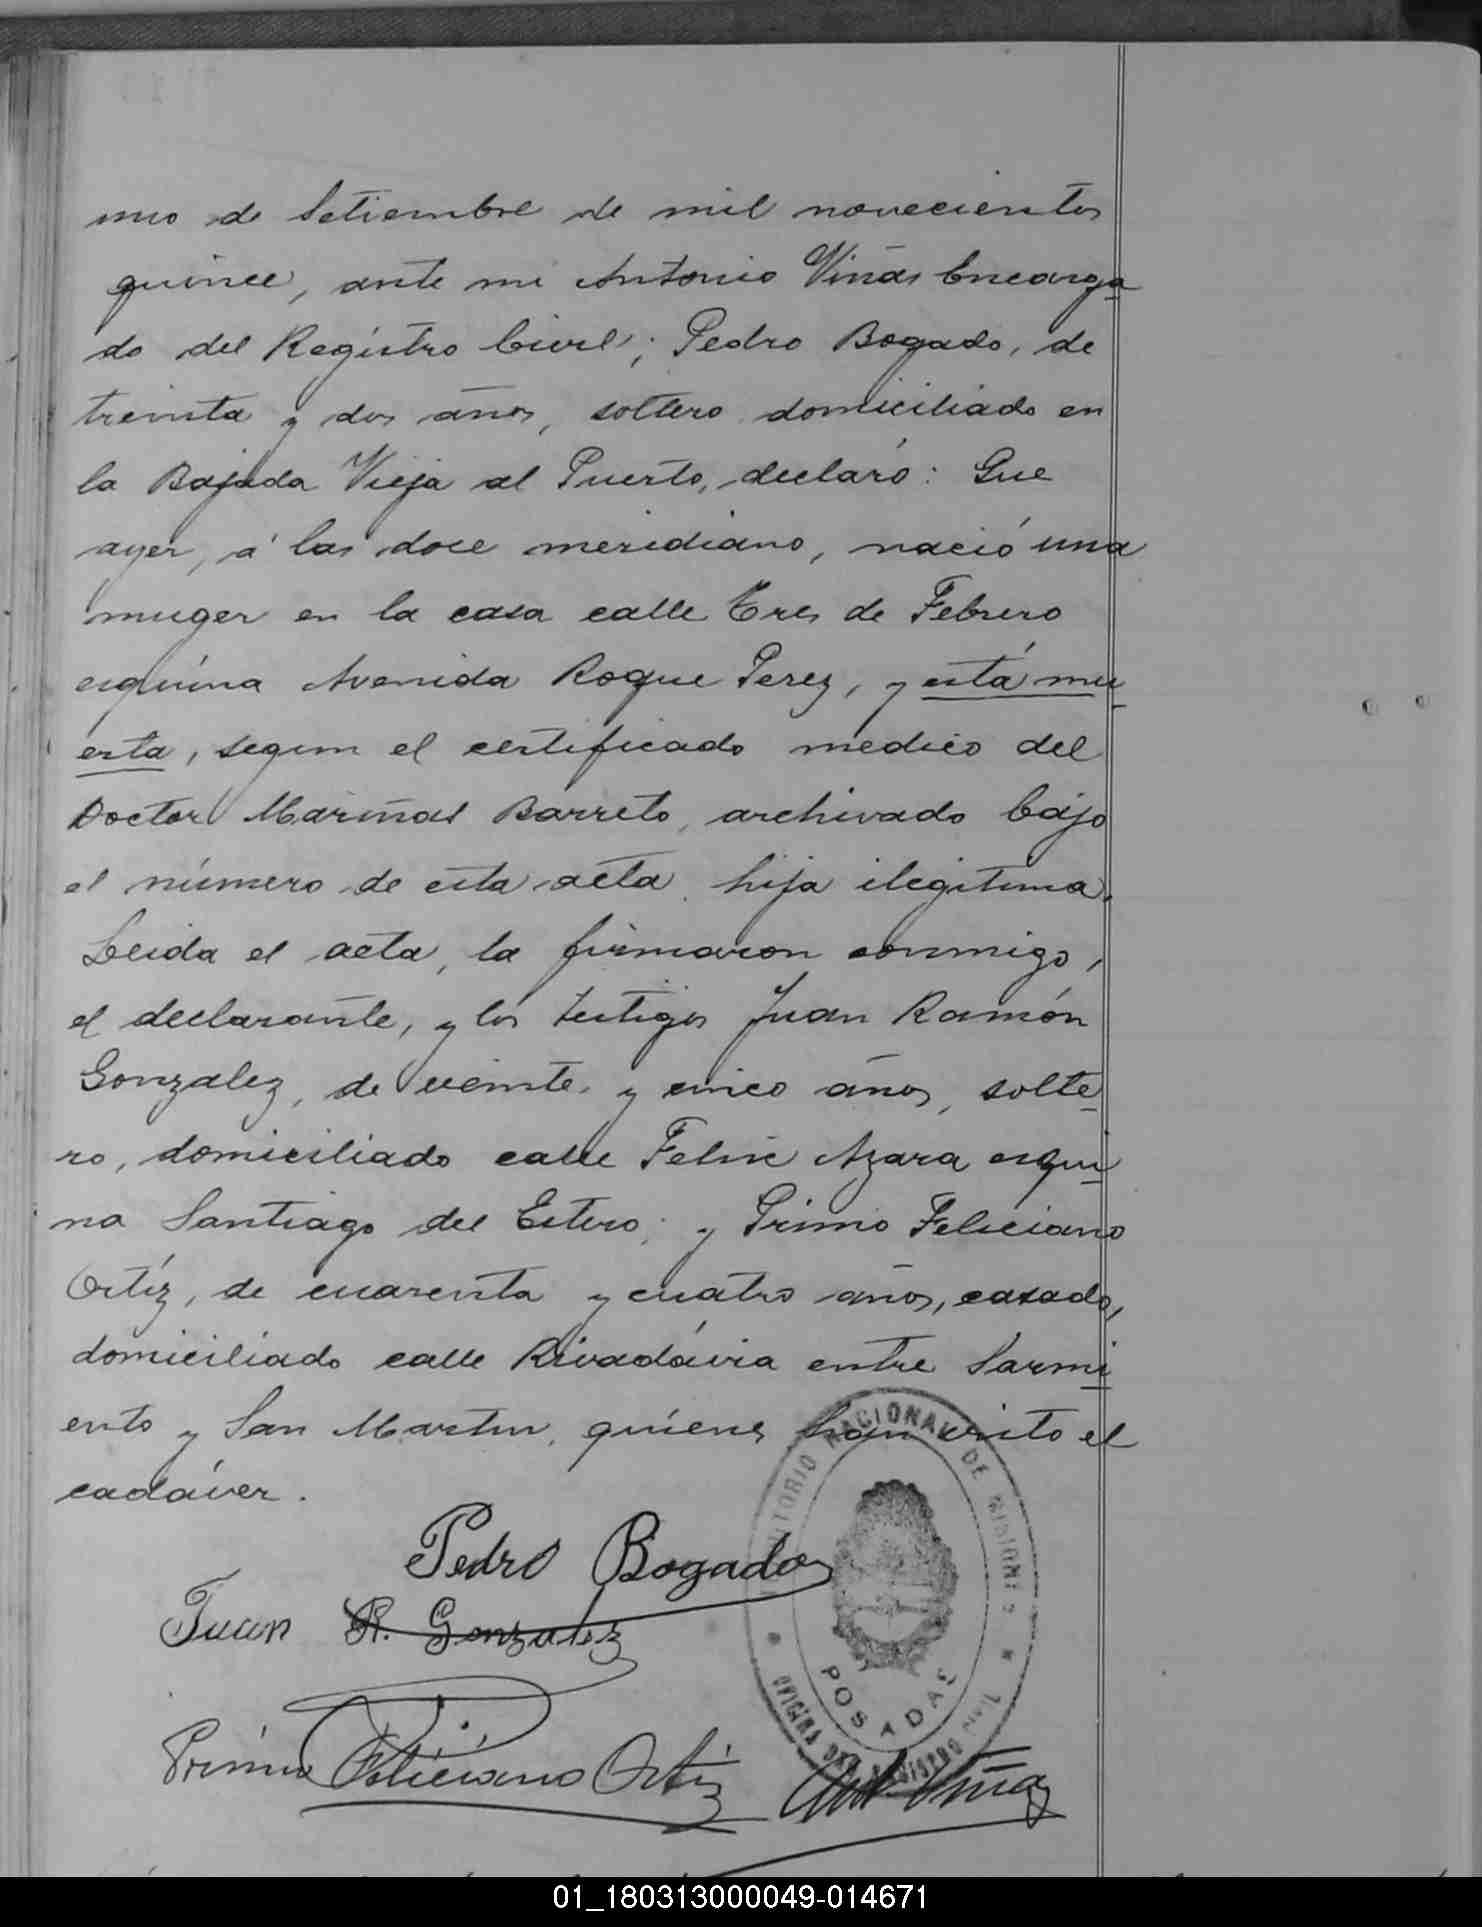 uno de Setiembre de mil novecientos
quince, ante mi Antonio Viñas Encarga
do del Registro Civil; Pedro Bogado, de
treinta y dos años, soltero domiciliado en
la Bajada Vieja al Puerto, declaró: Que
ayer, á las doce meridiano, nació una
muger en la casa calle Tres de Febrero
esquina Avenida Roque Perez, y está mu
erta, segun el certificado medico del
Doctor Mariñas Barreto, archivado bajo
el número de esta acta, hija ilegitima.
Leida el acta, la firmaron conmigo,
el declarante, y los testigos Juan Ramón
Gonzalez, de veinte y cinco años, solte
ro, domiciliado calle Felix Azara esqui
na Santiago del Estero; y Primo Feliciano
Ortíz, de cuarenta y cuatro años, casado,
domiciliado calle Rivadávia entre Sarmi
ento y San Martin, quienes han visto el
cadáver.
Pedro Bogado
Juan R. Gonzalez
Primo Feliciano Ortiz
Ant. Viñas
TERRITORIO NACIONAL DE MISIONES
OFICINA DEL REGISTRO CIVIL
POSADAS
01_180313000049-014671